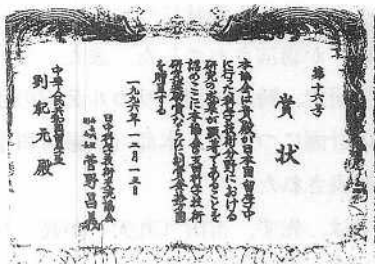 第十六号
賞状
本協会は貴殿が日本国留学中
に行った科学技術分野における
研究の業績が顕著であることを
認めここに本協会王国留学技術
研究奨励賞ならびに副賞金拾万円
を贈呈する
一九九六年一二月一三日
日中科学技術交流協会
菅野昌義
中華人民共和国留学生
到紀元殿